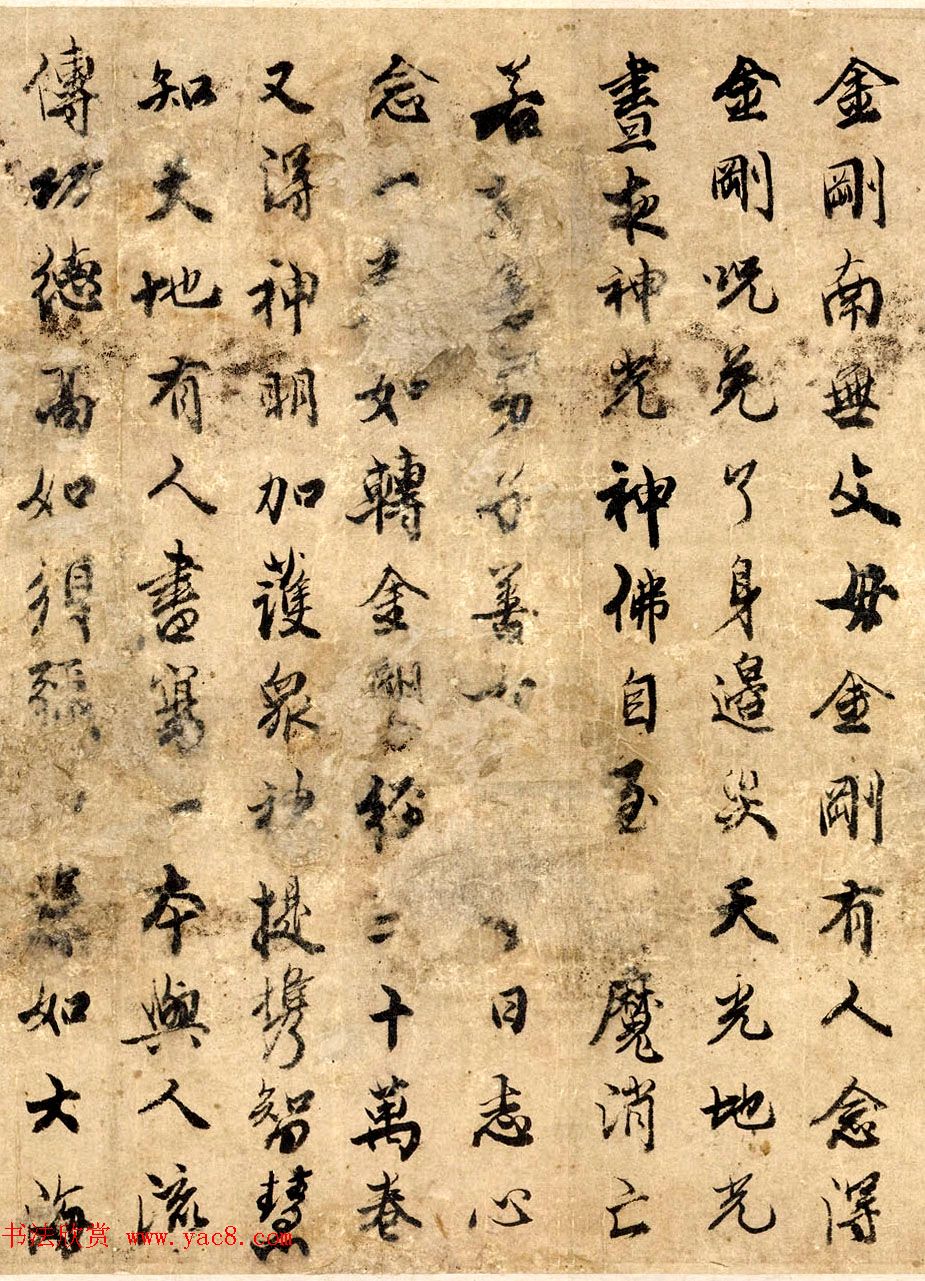 金剛南無父母金剛有人念得
金剛呪免了身邊災天光地光
晝夜神光神佛自至 魔消亡
若 善 日志心
念一 如轉金剛 經二十萬卷
又得神明加護衆神提携智慧
知天地有人書寫一本與人流
傳功德 如須彌 如大海
书法欣赏 www.yac8.com